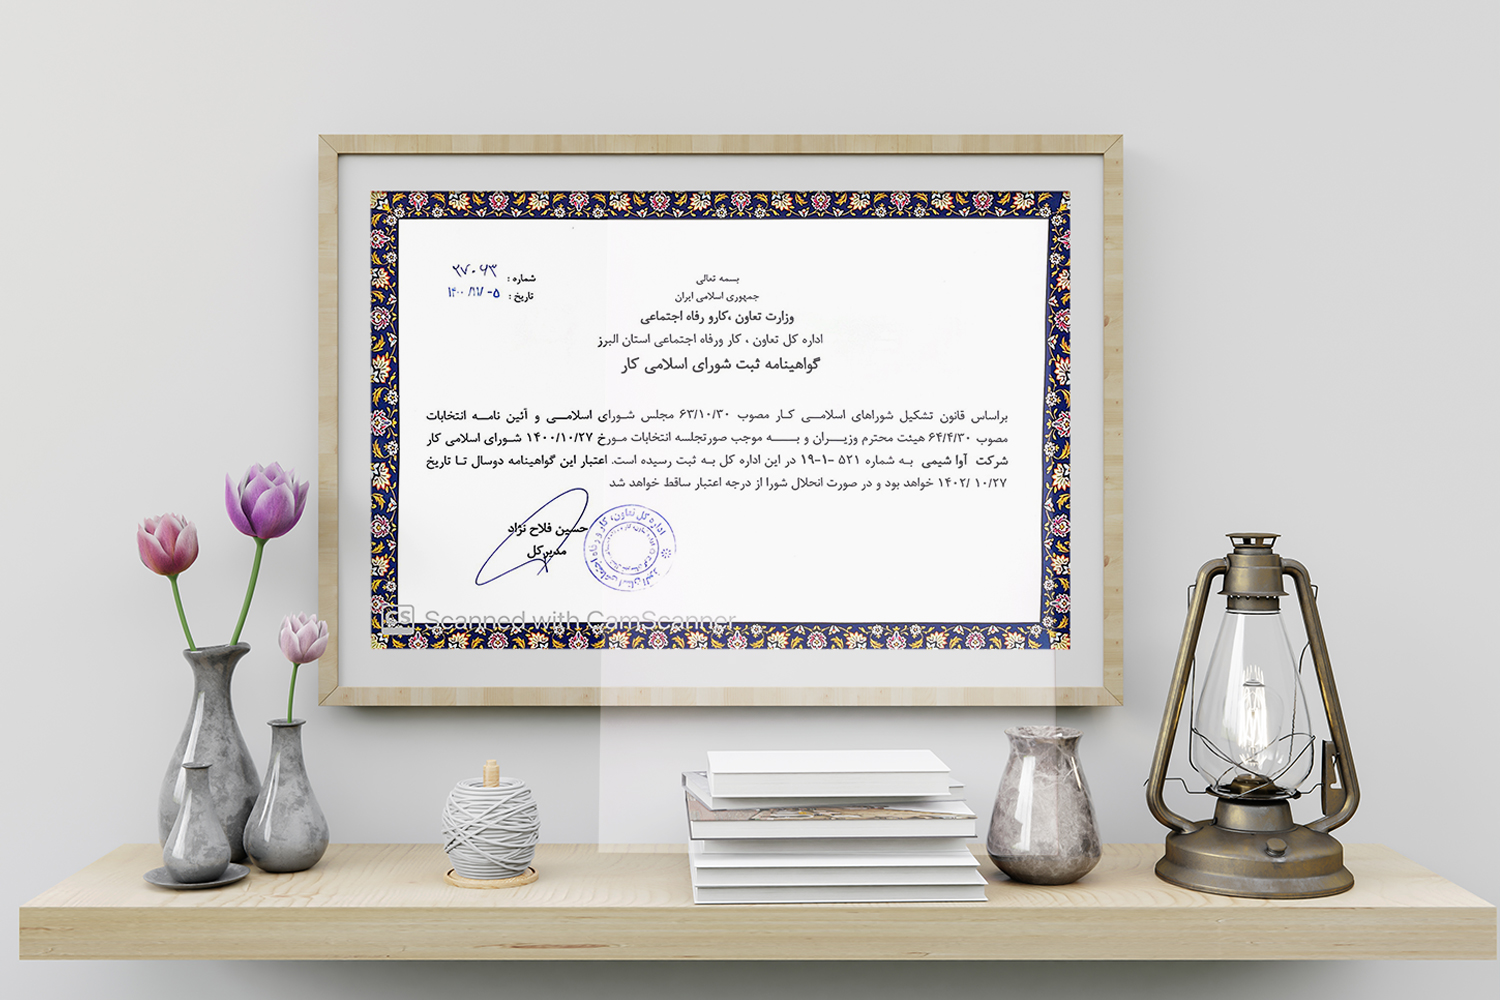 بسمه تعالی
جمهوری اسلامی ایران
وزارت تعاون ،کارو رفاه اجتماعی
اداره کل تعاون ، کار ورفاه اجتماعی استان البرز
گواهینامه ثبت شورای اسلامی کار
شماره : ۲۷۰۶۳
تاریخ :
براساس قانون تشکیل شوراهای اسلامی کار مصوب ۶۳/۱۰/۳۰ مجلس شورای اسلامی و آئین نامه انتخابات
مصوب ۶۴/۴/۳۰ هیئت محترم وزیران و به موجب صورتجلسه انتخابات مورخ ۱۴۰۰/۱۰/۲۷ شورای اسلامی کار
شرکت آوا شیمی به شماره ۵۲۱ -۱-۱۹ در این اداره کل به ثبت رسیده است. اعتبار این گواهینامه دوسال تا تاریخ
۱۴۰۲/ ۱۰/۲۷ خواهد بود و در صورت انحلال شورا از درجه اعتبار ساقط خواهد شد
حسین فلاح نژاد
مدیرکل
اداره کل تعاون، کار و رفاه اجتماعی استان البرز
CS Scanned with CamScanner